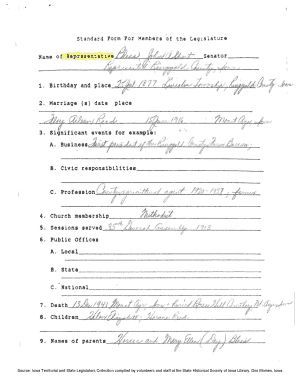 Standard Form For Members of the Legislature
Name of Representative Bliss, John Albert Senator
Represented Ringgold County, Iowa
1. Birthday and place 1877 Township, Ringgold County, Iowa
2. Marriage (s) date place
June 1916 Mount Ayr, Iowa
3. Significant events for example:
A. Business First president of the Ringgold County Farm Bureau
B. Civic responsibilities
C. Profession County agent farmer
4. Church membership Methodist
5. Sessions served 35th General Assembly 1913
6. Public Offices
A. Local
B. State
C. National
7. Death 13 Dec 1941 Mount Ayr, Iowa buried Rose Hill Cemetery Mt Ayr, Iowa
8. Children
9. Names of parents Horace and Mary Ellen (Day) Bliss
Source: Iowa Territorial and State Legislators Collection compiled by volunteers and staff at the State Historical Society of Iowa Library, Des Moines, Iowa.